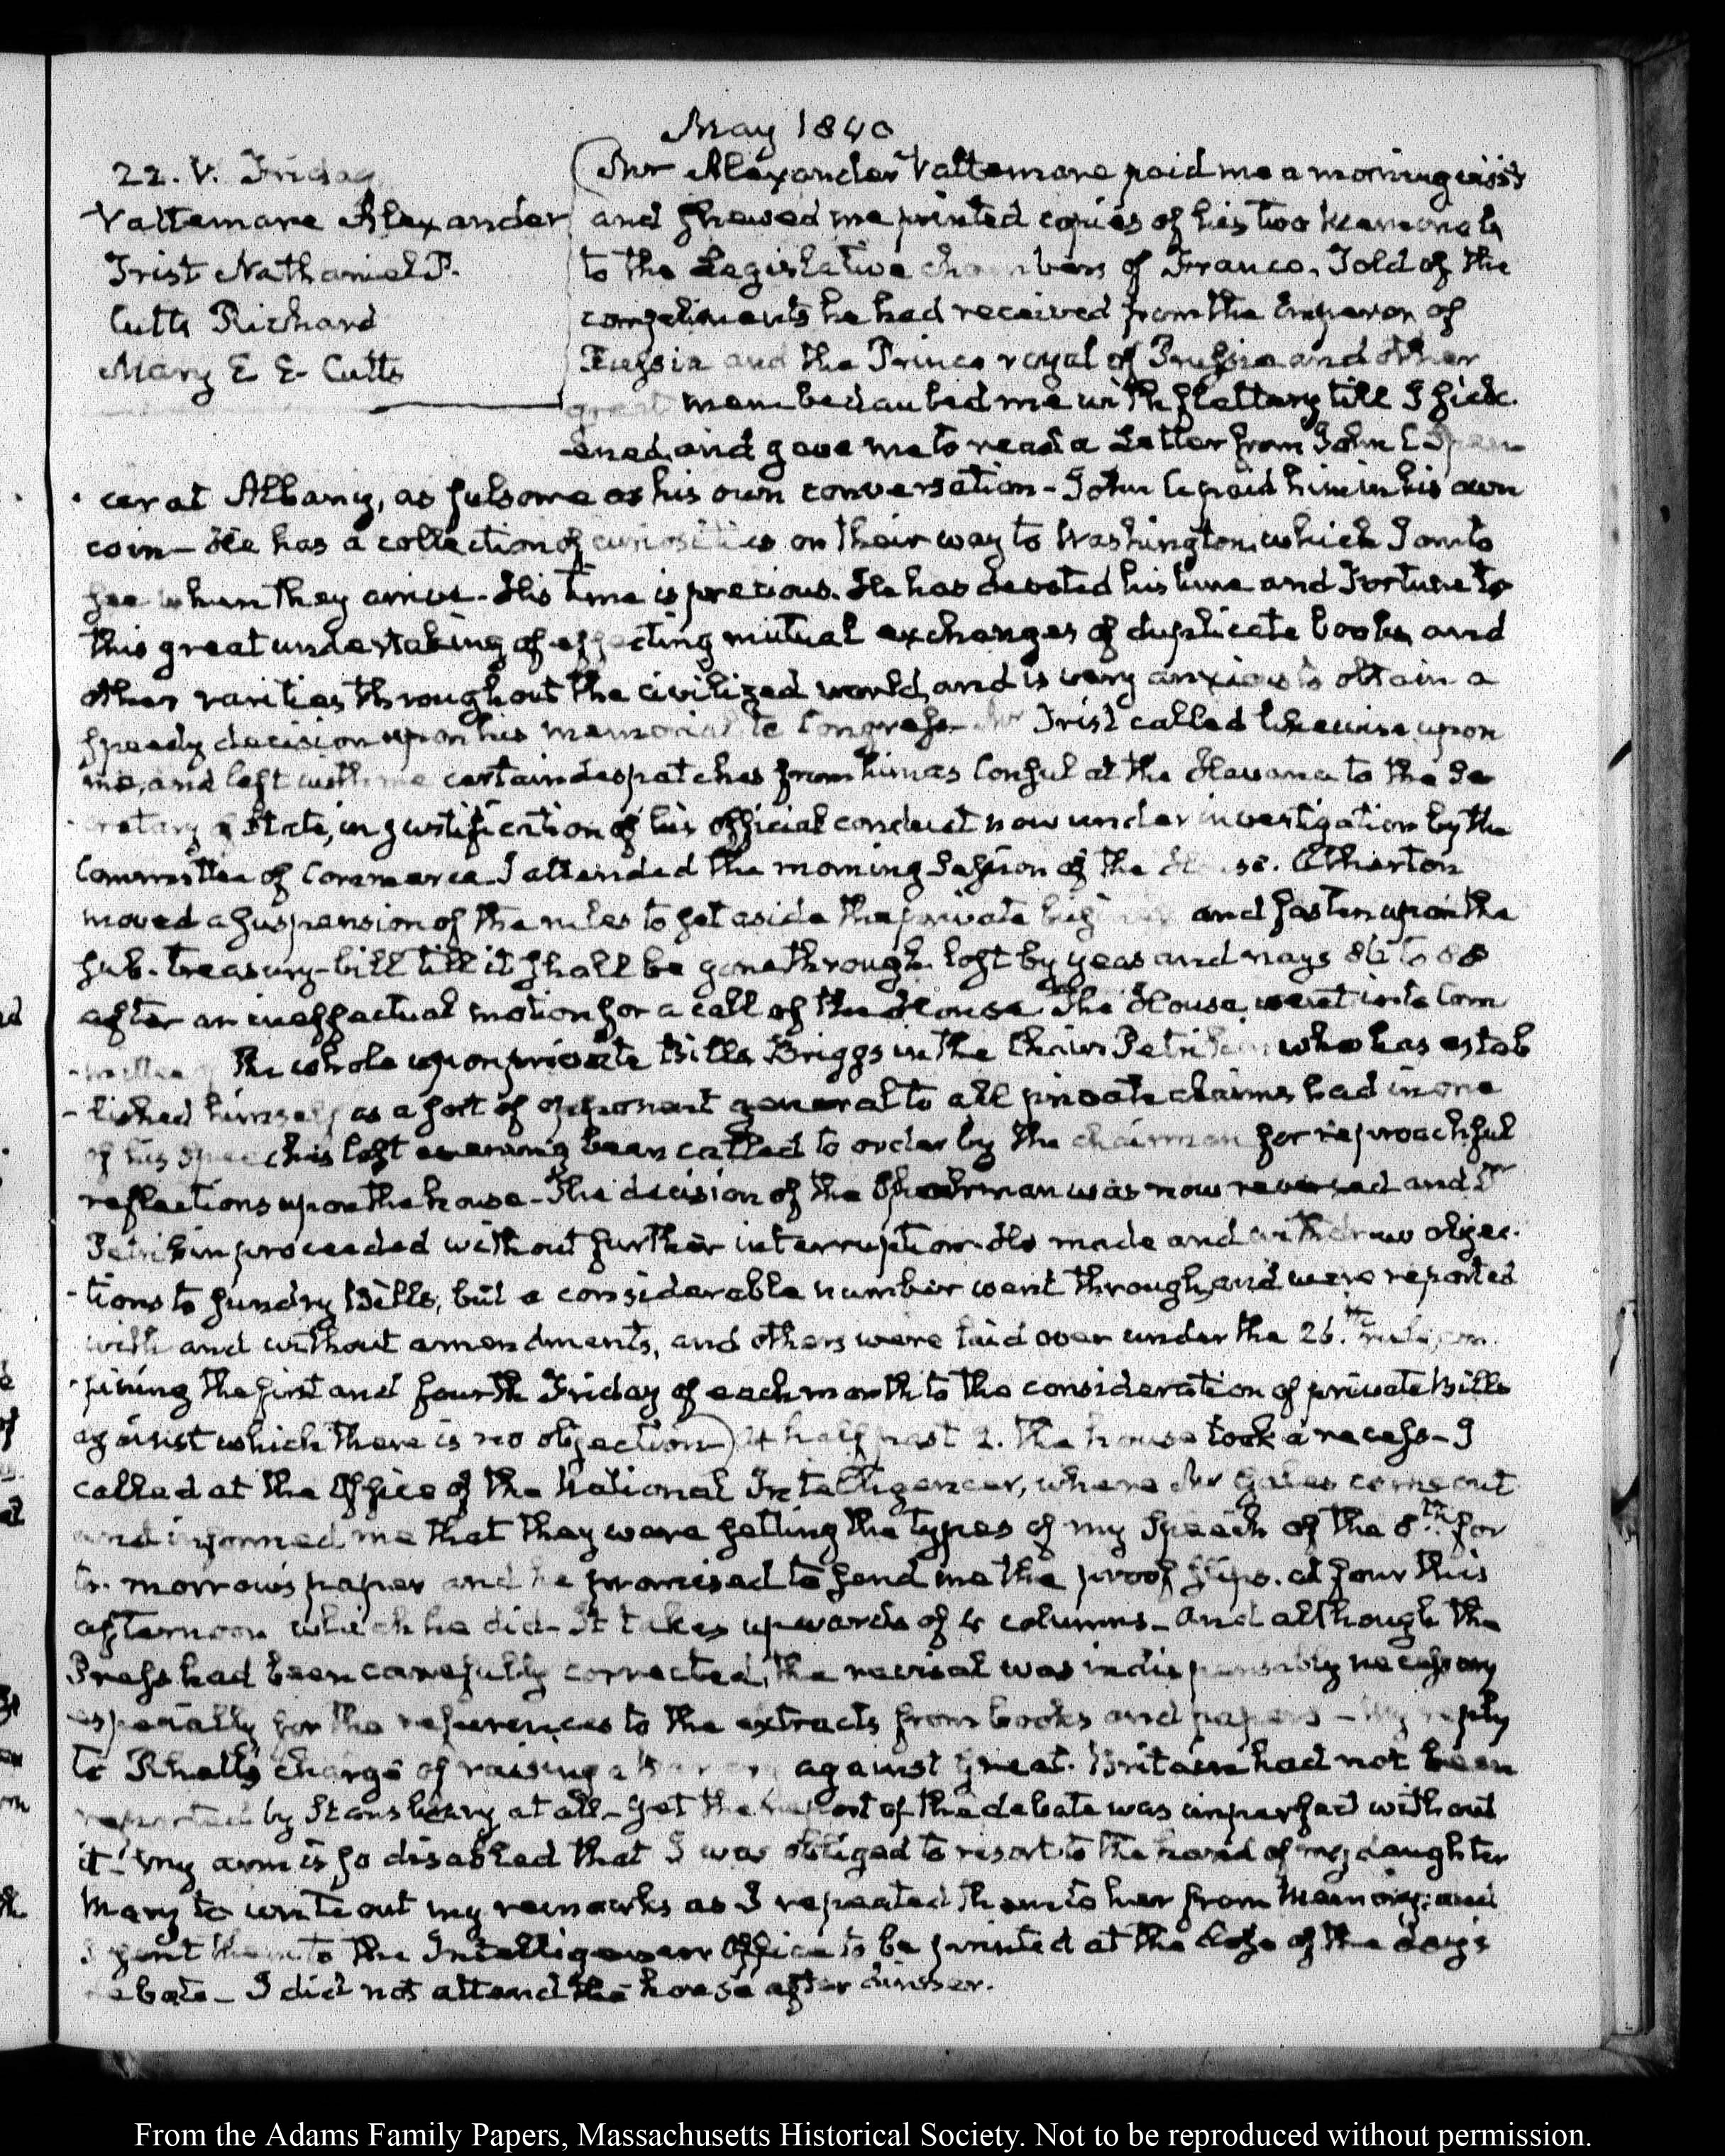 May 1840
22. V. Friday
Vattemare Alexander
Trist Nathaniel P.
Cutts Richard
Mary E E. Cutts
Mr Alexander Vattemare paid me a morning visit
and shewed me printed copies of his two Memorials
to the Legislative chambers of France. Told of the
compliments he had received from the Emperor of
Russia and the Prince royal of Prussia and other
great men bedaubed me with flattery till I sick-
-ened, and gave me to read a Letter from John C Spen-
-cer at Albany, as fulsome as his own conversation - John C paid him in his own
coin - He has a collection of curiosities on their way to Washington, which I am to
see when they arrive - His time is precious. He has devoted his time and Fortune to
this great undertaking of effecting mutual exchanges of duplicate books, and
other rarities throughout the civilized world, and is very anxious to obtain a
speedy decision upon his memorial to Congress - Mr Trist called likewise upon
me, and left with me certain despatches from him as Consul at the Havana to the Se
-cretary of State, in justification of his official conduct now under investigation by the
Committee of Commerce - I attended the morning Session of the House. Atherton
moved a suspension of the rules to set aside the private and fasten upon the
sub-treasury-bill till it shall be gone through. lost by yeas and nays 86 to 88
after an ineffectual motion for a call of the House. The House went into Com
-mittee of the whole upon private Bills Briggs in the Chair. Petrikin who has estab
-lished himself as a sort of opponent general to all private claims had in one
of his speechis last evening been called to order by the chairman for reproachful
reflections upon the house - The decision of the Chairman was now reversed and Dr
Petrikin proceeded without further interruption. He made and withdrew objec-
-tions to sundry Bills, but a considerable number went through, and were reported
with and without amendments, and others were laid over under the 26.th rule, con
-fining the first and fourth Friday of each month to the consideration of private Bills
against which there is no objection) At half past 2. the house took a recess - I
called at the Office of the National Intelligencer, where Mr Gales came out
and informed me that they were setting the types of my Speech of the 8.th for
to-morrow's paper and he promised to send me the proof slips. at four this
afternoon which he did - It takes upwards of 4 columns - and although the
Press had been carefully corrected, the revisal was indispensably necessary
especially for the references to the extracts from books and papers - My reply
to Rhett's charge of raising a against Great-Britain had not been
reported by Stansbury at all - yet the report of the debate was imperfect without
it - My arm is so disabled that I was obliged to resort to the hand of my daughter
Mary to write out my remarks as I repeated them to her from Memory; and
I sent them to the Intelligencer Office to be printed at the close of the day's
debate - I did not attend the house after dinner.
From the Adams Family Papers, Massachusetts Historical Society. Not to be reproduced without permission.